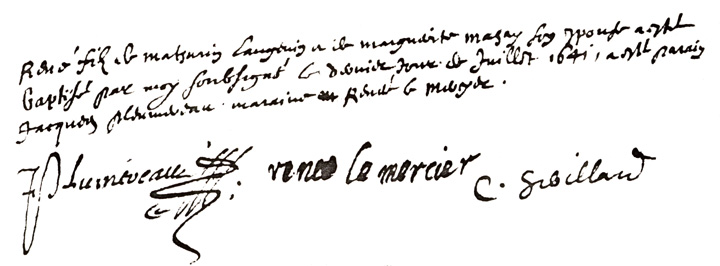 René filz de mathurin Laugevin et de marguerite mazay son epouse a esté
baptisé par moy soubsigné le dernier jour de Juillet 1641, a esté parain
Jacques plumeveau maraine Renée le mercyer.
J Plumeveau renee le mercier C. Swillard